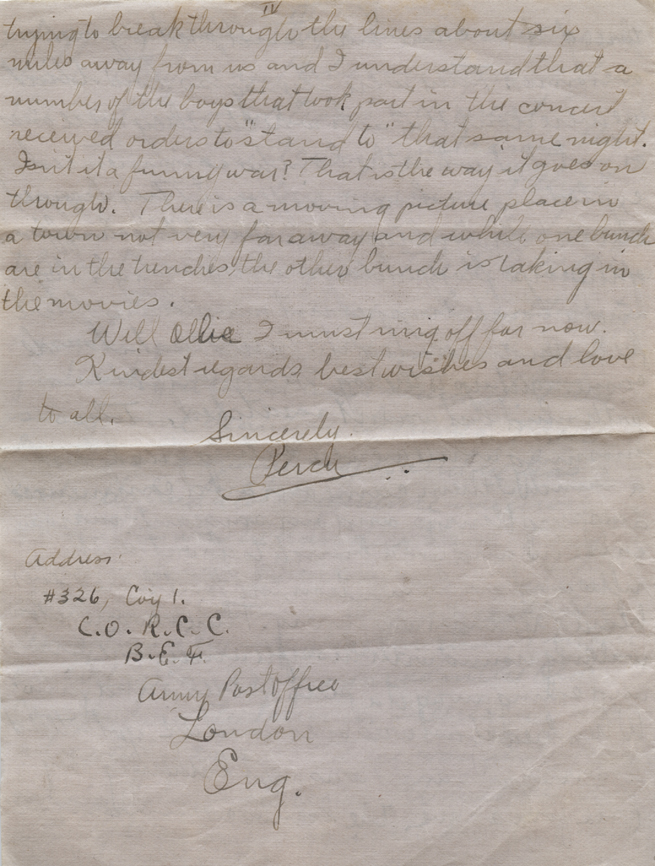 IV
trying to break through the lines about six
miles away from us and I understand that a
number of the boys that took part in the concert
received orders to "stand to" that same night.
Isnt it a funny war? That is the way it goes on
through. There is a moving picture place in
a town not very far away and while one bunch
are in the trenches the other bunch is taking in
the movies.
Will Ollie I must ring off for now.
Kindest regards best wishes and love
to all.
Sincerely.
Address.
#326, Coy 1.
C.O.R.C.C.
B.E.F.
Army Postoffice
London
Eng.